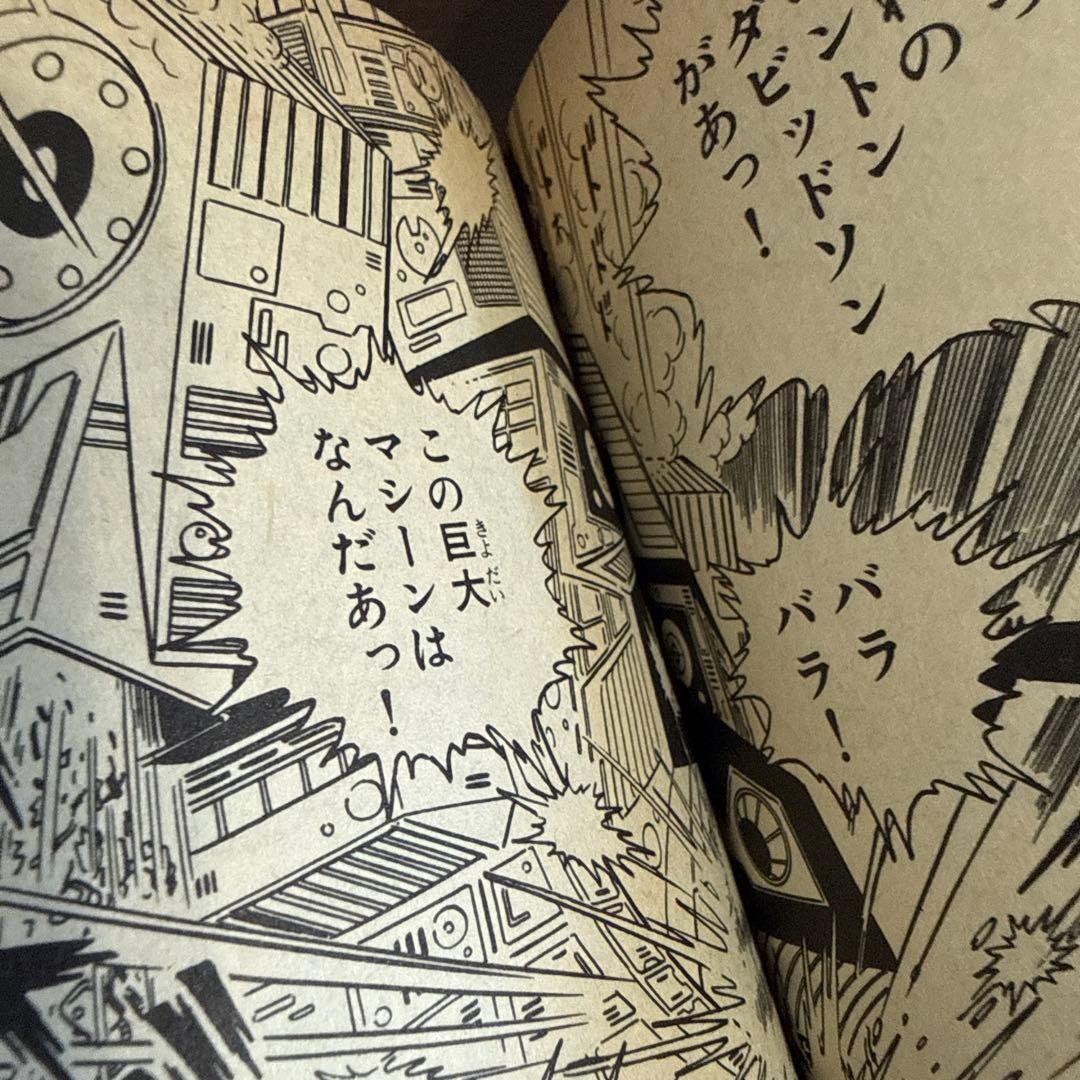 の
ントン
ダビッドソン
があっ！
バラ
バラ！
この巨大
きょだい
マシーンは
なんだあっ！